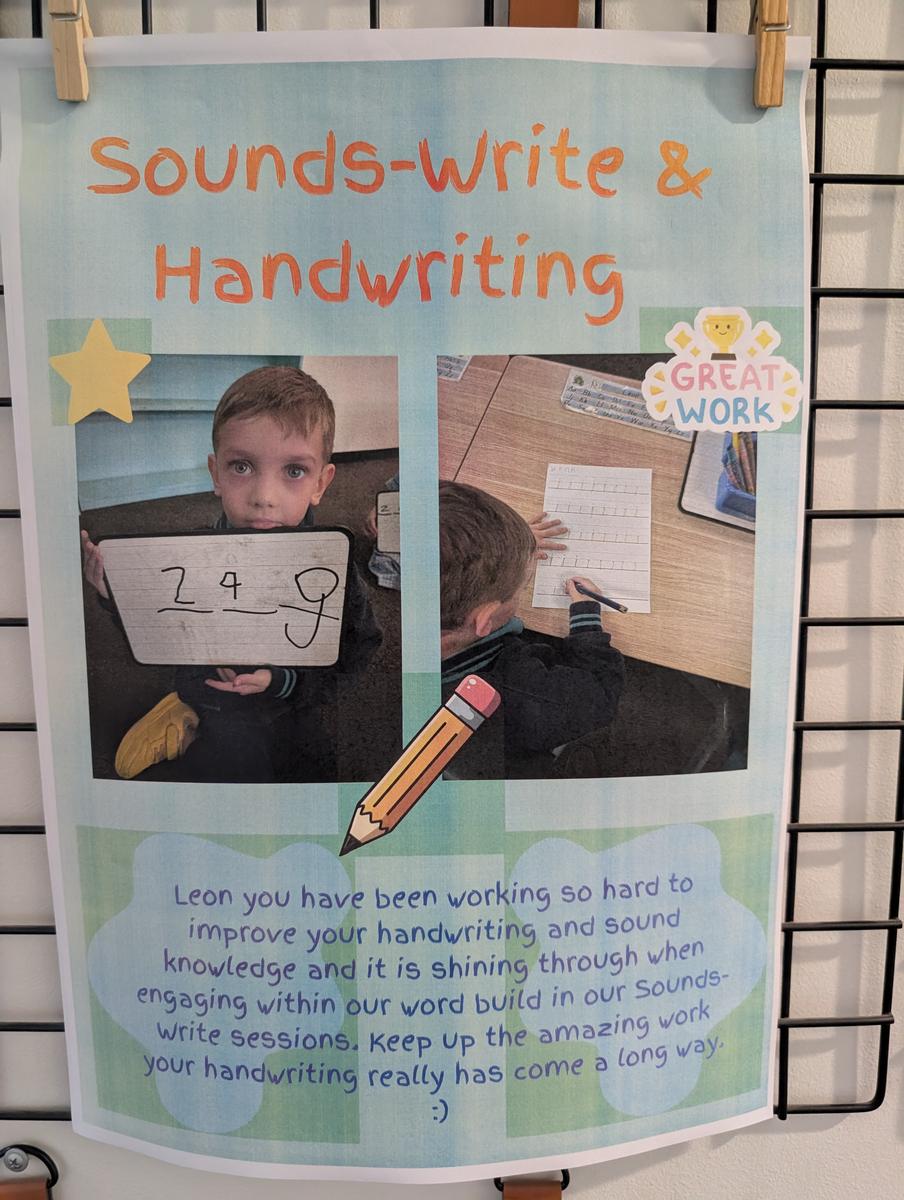 Sounds-Write &
Handwriting
GREAT
WORK
Leon you have been working so hard to
improve your handwriting and sound
knowledge and it is shining through when
engaging within our word build in our Sounds-
Write sessions. Keep up the amazing work
your handwriting really has come a long way.
:)